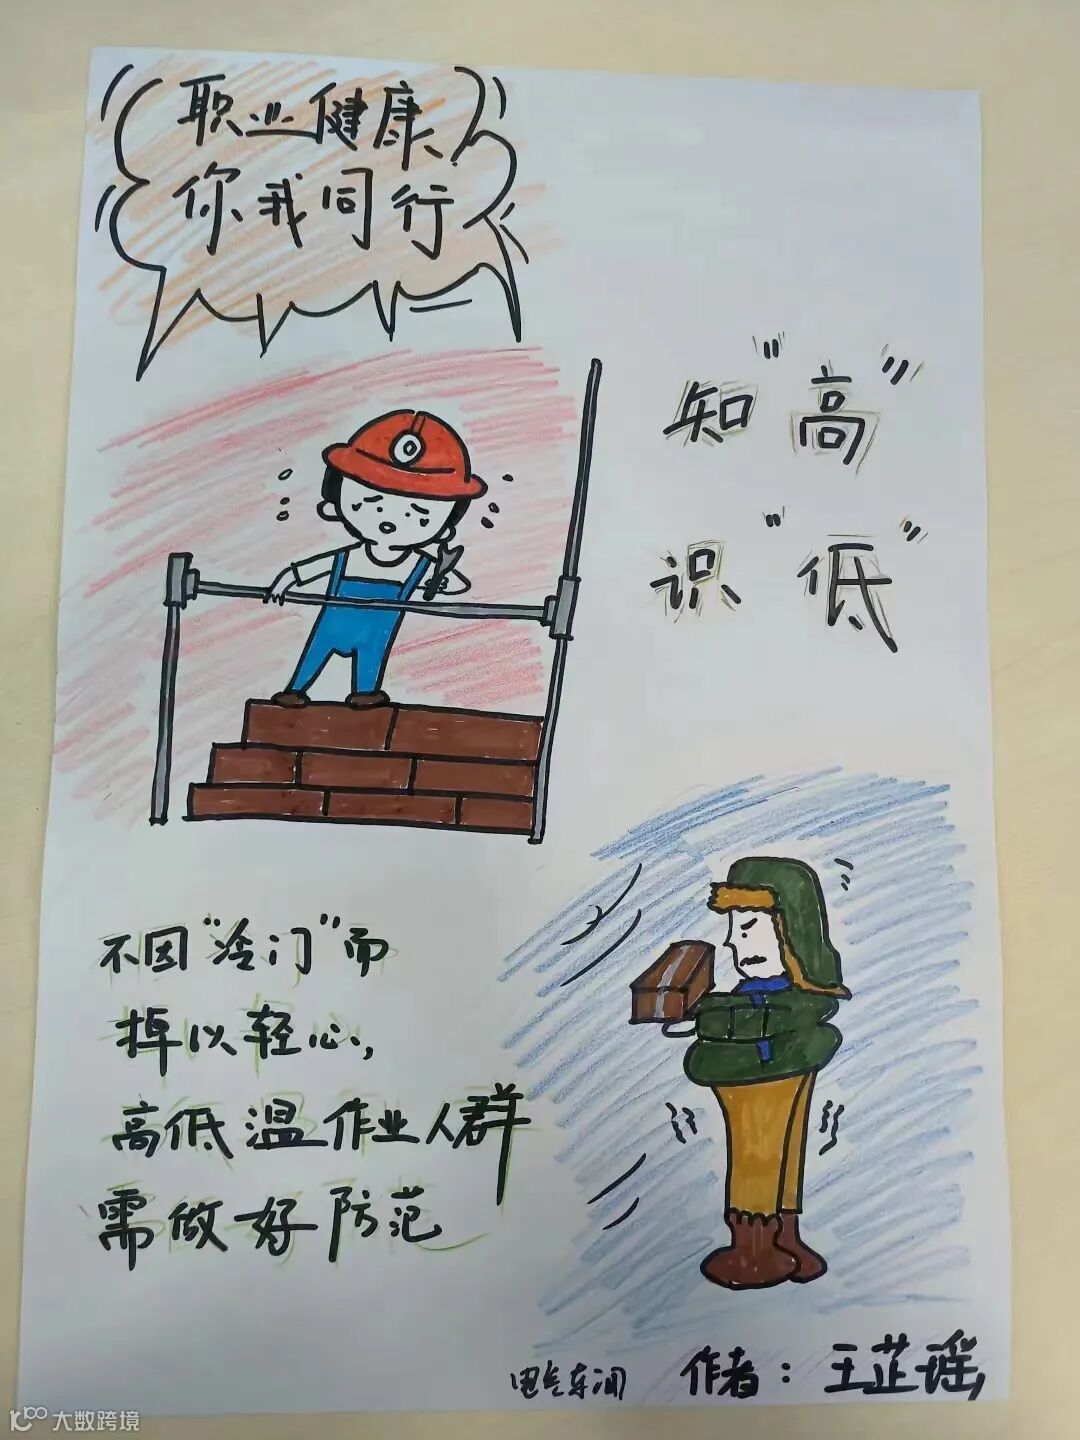 职业健康
你我同行
知"高"
识"低"
不因"冷门"而
掉以轻心,
高低温作业人群
需做好防范
电气车间 作者:王芷瑶
大数跨境